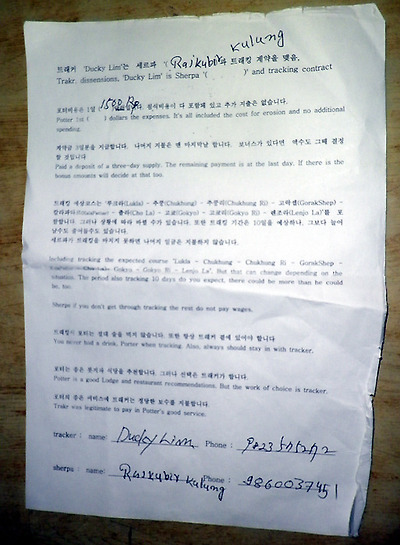 Raikubir Kulung
트래커 'Ducky Lim'는 셰르파 '( )'과 트래킹 계약을 맺음.
Trakr. dissensions, 'Ducky Lim' is Sherpa '( )' and tracking contract
포터비용은 1일 1500 Rp 다 포함돼 있고 추가 지출은 없습니다.
Potter 1st ( ) dollars the expenses. It's all included the cost for erosion and no additional
spending.
계약금 3일분을 지급합니다. 나머지 지불은 맨 마지막날 합니다. 보너스가 있다면 액수도 그때 결정
할 것입니다
Paid a deposit of a three-day supply. The remaining payment is at the last day. If there is the
bonus amounts will decide at that too.
트래킹 예상코스는 '루크라(Lukla) - 추쿵(Chukhung) - 추쿵리(Chukhung Ri) - 고락셉(GorakShep) -
촐라(Cho La) - 고쿄(Gokyo) - 고쿄리(Gokyo Ri) - 렌조라(Lenjo La)'를 포
함합니다. 그러나 상황에 따라 바뀔 수가 있습니다. 또한 트래킹 기간은 10일을 예상하나, 그보다 늘어
날수도 줄어들수도 있습니다.
셰르파가 트래킹을 마치지 못하면 나머지 임금은 지불하지 않습니다.
Including tracking the expected course 'Lukla - Chukhung - Chukhung Ri - GorakShep -
Cho La - Gokyo - Gokyo Ri - Lenjo La'. But that can change depending on the
situation. The period also tracking 10 days do you expect, there could be more than be could
be, too.
Sherpa if you don't get through tracking the rest do not pay wages.
트래킹시 포터는 절대 술을 먹지 않습니다. 또한 항상 트래커 곁에 있어야 합니다
You never had a drink, Porter when tracking. Also, always should stay in with tracker.
포터는 좋은 롯지와 식당을 추천합니다. 그러나 선택은 트래커가 합니다.
Potter is a good Lodge and restaurant recommendations. But the work of choice is tracker.
포터의 좋은 서비스에 트래커는 정당한 보수를 지불합니다.
Trakr was legitimate to pay in Potter's good service.
tracker : name: Ducky Lim Phone :
sherpa : name: Raikubir Kulung Phone : 9860037451